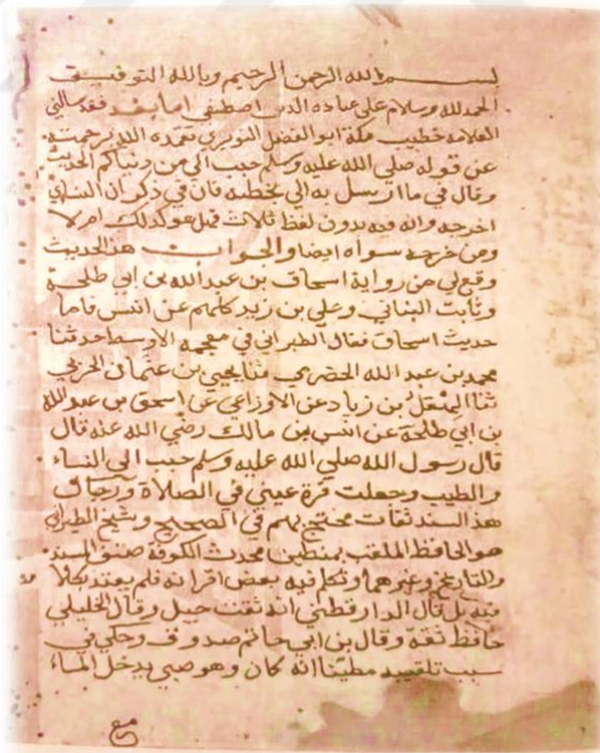 بسم الله الرحمن الرحيم وبالله التوفيق
الحمد لله وسلام على عباده الذين اصطفى اما بعد فقد سالني
العلامة خطيب مكة ابو الفضل النويري تغمده الله برحمته
عن قوله صلي الله عليه وسلم حبب الي من دنياكم الحديث
وقال في ما ارسل به الي بخطه فان في ذكر ان النسائي
اخرجه وانه فيه بدون لفظ ثلاث فهل هو كذلك ام لا
ومن خرجه سواه ايضا والجواب هذا الحديث
وقع لي من رواية اسحاق بن عبد الله بن ابي طلحة
وثابت البناني وعلي بن زيد كلهم عن انس فاما
حديث اسحاق فقال الطبراني في معجمه الاوسط حدثنا
محمد بن عبد الله الحضرمي ثنا يحيي بن عثمان الحربي
ثنا الهقل بن زياد عن الاوزاعي عن اسحق بن عبد الله
بن ابي طلحة عن انس بن مالك رضي الله عنه قال
قال رسول الله صلي الله عليه وسلم حبب الي النساء
والطيب وجعلت قرة عيني في الصلاة ورجال
هذا السند ثقات محتج بهم في الصحيح وشيخ الطبراني
هو الحافظ الملقب بمطين محدث الكوفة صنف المسند
والتاريخ وغيرهما وتكلم فيه بعض اقرانه فلم يعتد بكلا
فيه بل قال الدارقطني انه ثقت جبل وقال الخليلي
حافظ ثقة وقال بن ابي حاتم صدوق وحكي في
سبب تلقيبه مطينا انه كان وهو صبي يدخل الماء